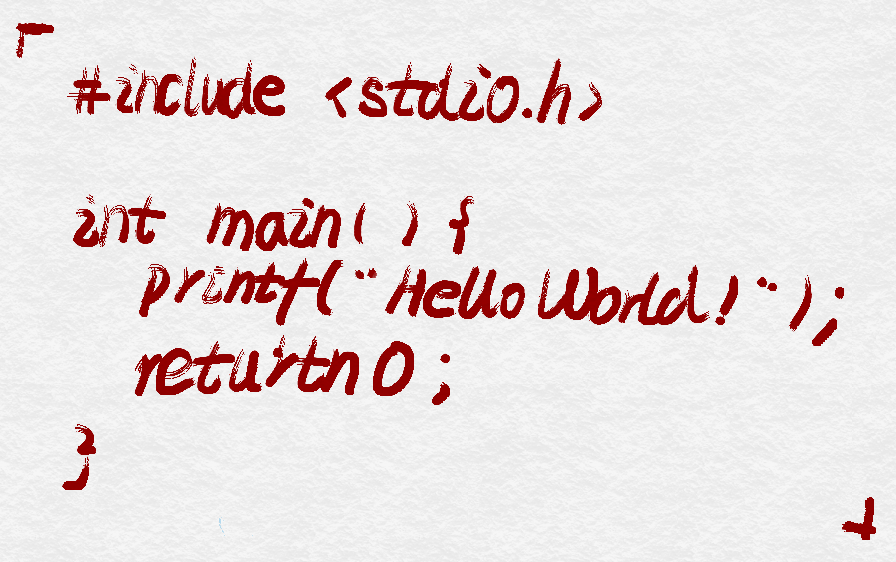 #include <stdio.h>
int main( ) {
printf("Hello World!");
returtn 0;
}